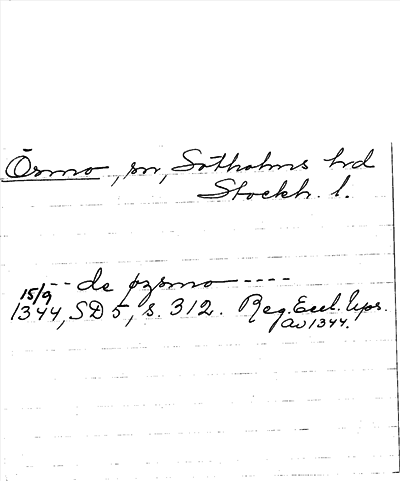 Ösmo, sn, Sotholms hrd
Stockh. l.
-- de øzsmo ----
15/9
1344, SD 5, s. 312. Reg. Eccl. Ups.
av 1344.